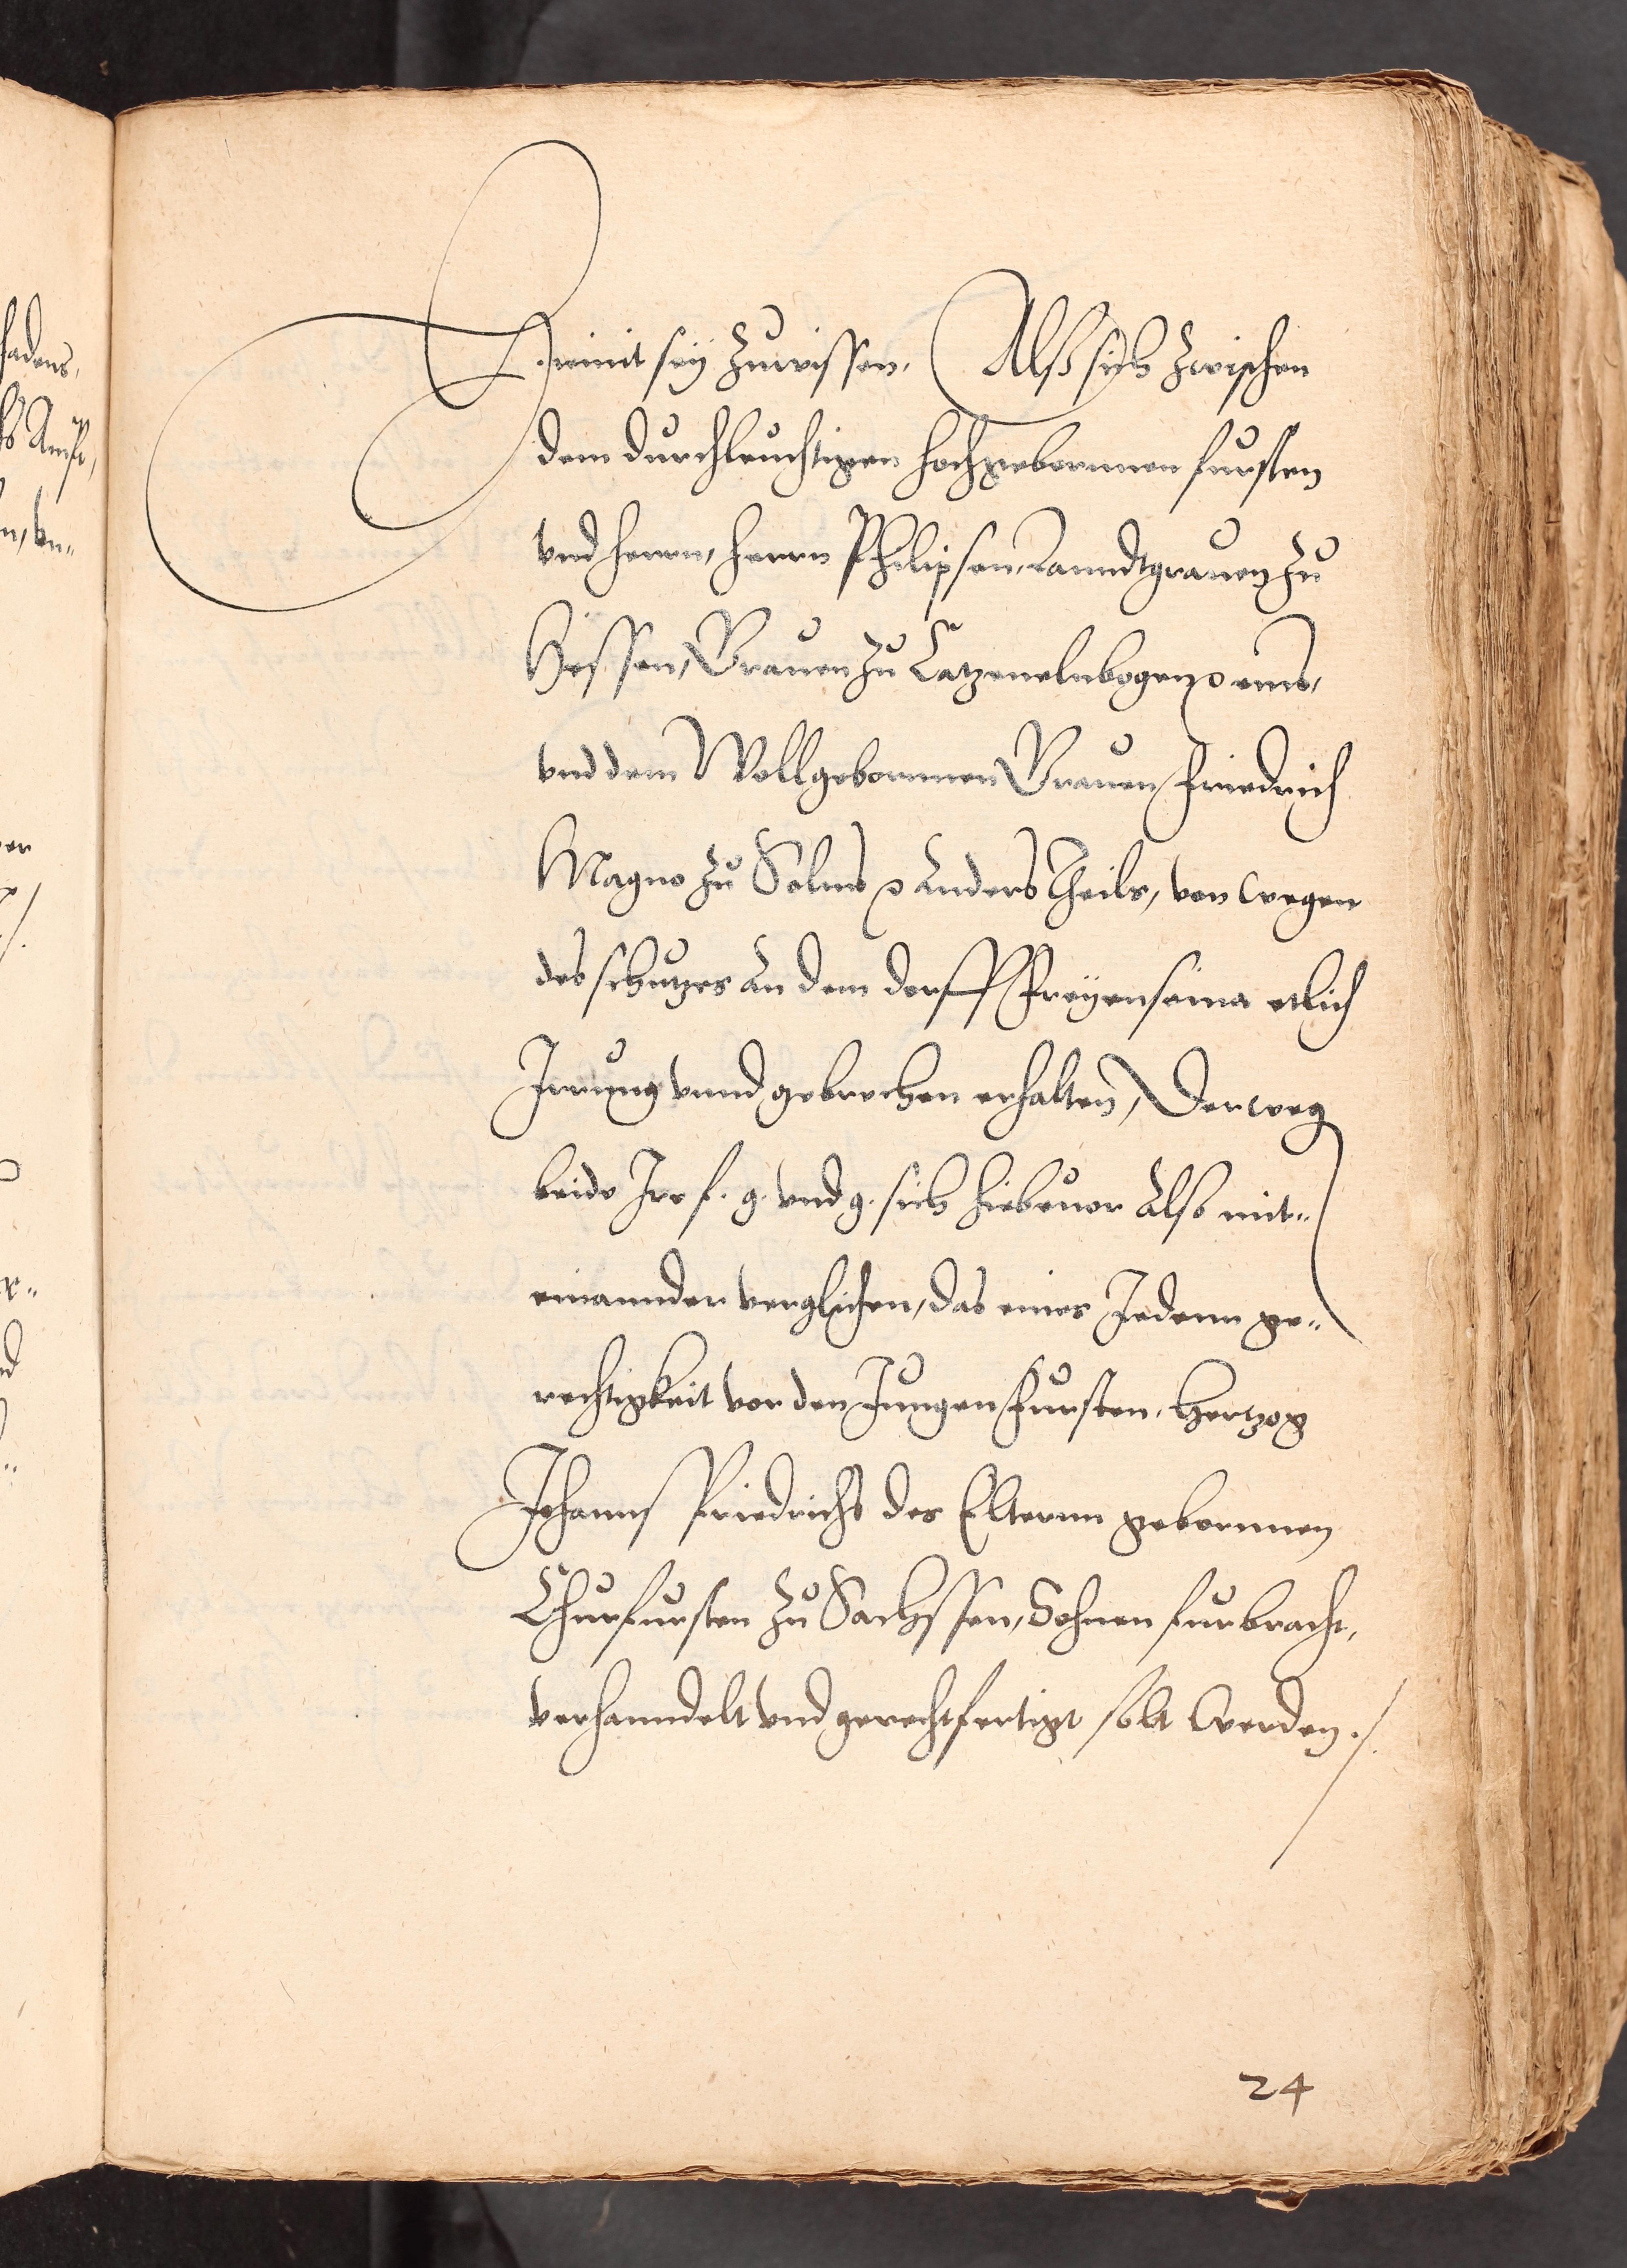 Hiemit sey zuwissen, Alß sich zwischen
dem durchleuchtigen hochgebornnen fursten
vnd herrn, herrn Philipsen, Lanndtgrauen zu
Hessen, Grauen zu Catzenelnbogen ꝛc eins,
vnd dem Wollgebornnen Grauen Friedrich
Magno zu Solms ꝛc Anders theils, von wegen
des schutzes An dem dorff Freyenseina etlich
Irrung vnnd gebrechen erhalten, Derweg
beide Ire f. g. vnd g. sich hiebeuor Also mit¬
einannder verglichen, das eines Jedenn ge¬
rechtigkeit vor den Jungen Fursten, Hertzog
Johanns Friedrichs des Elternn gebornnen
Churfursten zu Sachssen, Sohnen furbracht,
verhanndelt vnd gerechtfertigt solt werden ./.
24